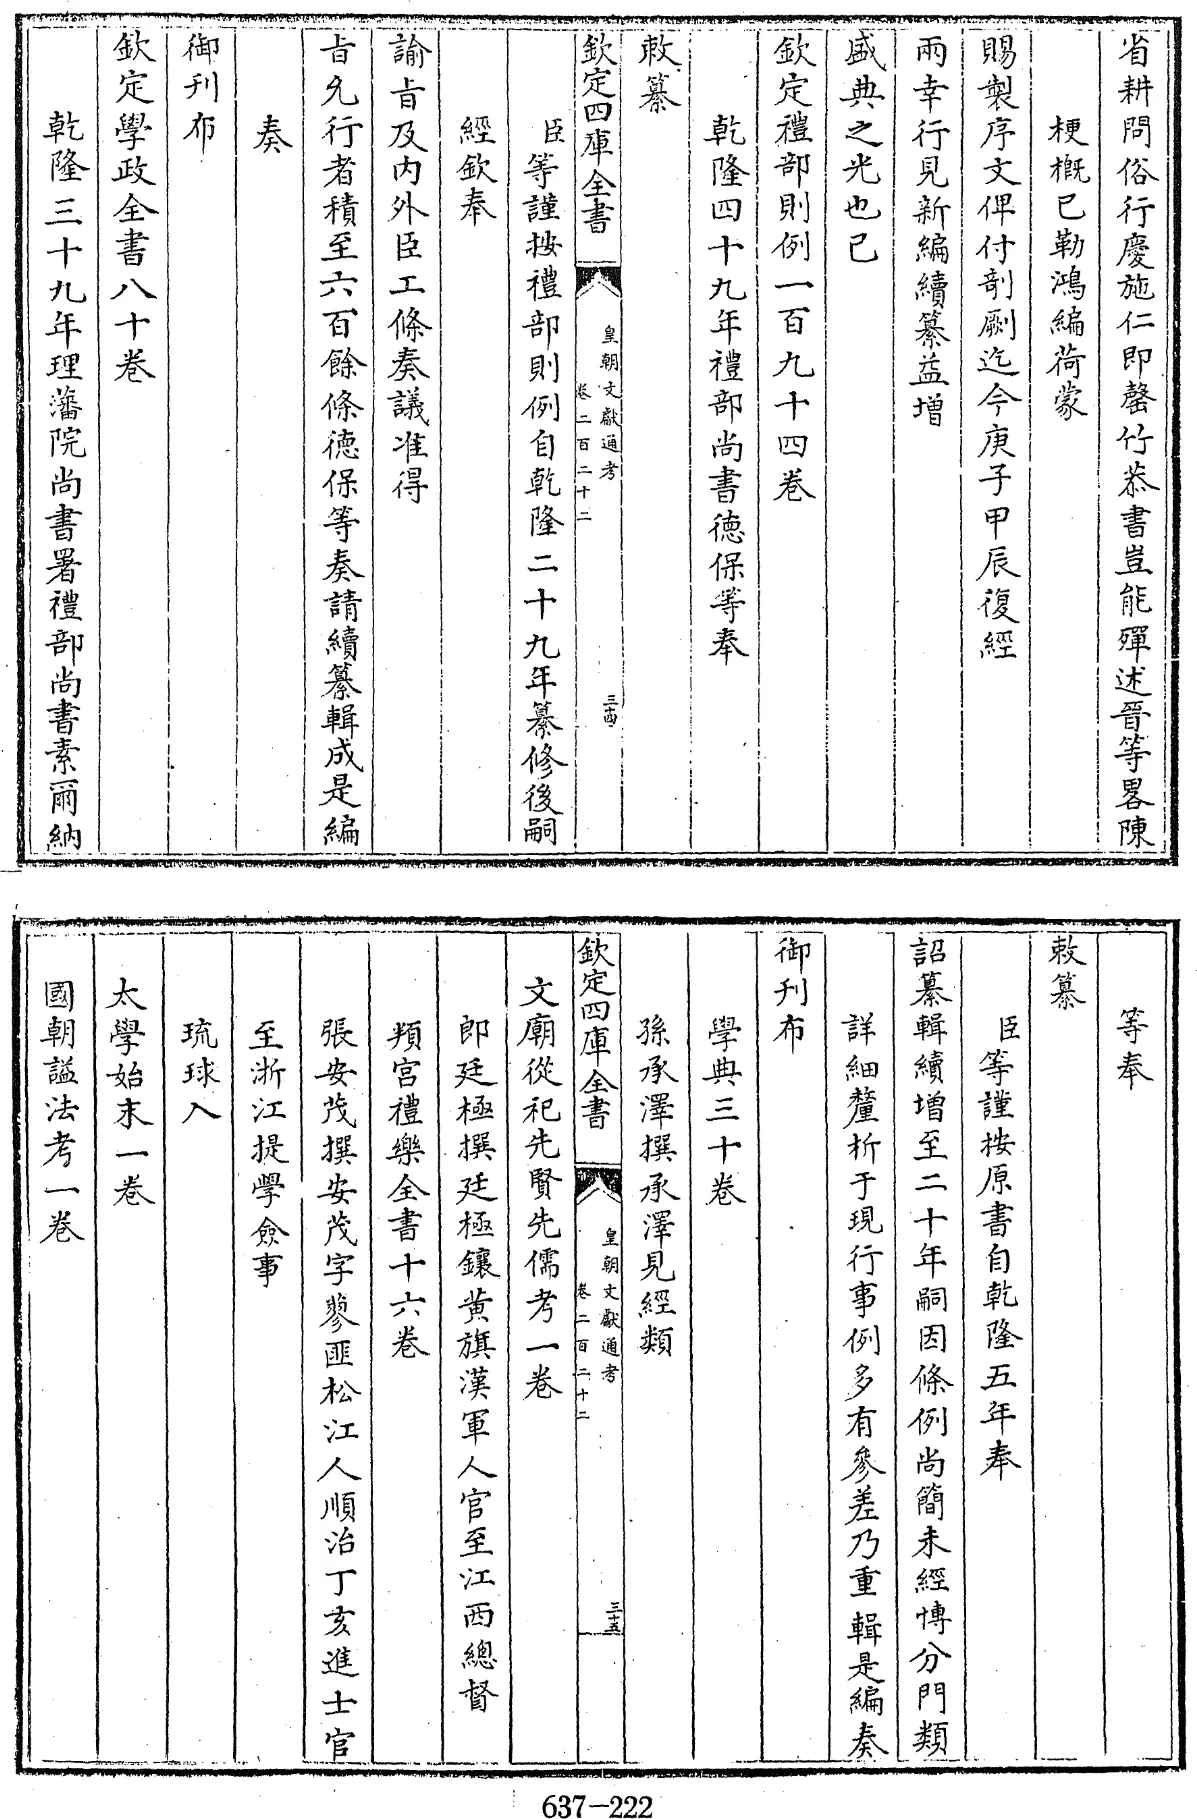 省耕問俗行慶施仁即罄竹恭書豈能殫述晉等畧陳
梗槪已勒鴻編荷蒙
賜製序文俾付剞劂迄今庚子甲辰復經
兩幸行見新編續纂益增
盛典之光也已
欽定禮部則例一百九十四卷
乾隆四十九年禮部尚書德保等奉
敕纂
欽定四庫全書
皇朝文獻通考
卷二百二十二
三十四
臣等謹按禮部則例自乾隆二十九年纂修後嗣
經欽奉
諭旨及内外臣工條奏議准得
旨允行者積至六百餘條德保等奏請續纂輯成是編
奏
御刊布
欽定學政全書八十卷
乾隆三十九年理藩院尚書署禮部尚書素爾納
等奉
敕纂
臣等謹按原書自乾隆五年奉
詔纂輯續增至二十年嗣因條例尚簡未經愽分門類
詳細釐析于現行事例多有參差乃重輯是編奏
御刊布
學典三十卷
孫承澤撰承澤見經類
欽定四庫全書
皇朝文獻通考
卷二百二十二
三十五
文廟從祀先賢先儒考一卷
郎廷極撰廷極鑲黃旗漢軍人官至江西總督
頖宮禮樂全書十六卷
張安茂撰安茂字蓼匪松江人順治丁亥進士官
至浙江提學僉事
琉球入
太學始末一卷
國朝謚法考一卷
637-222